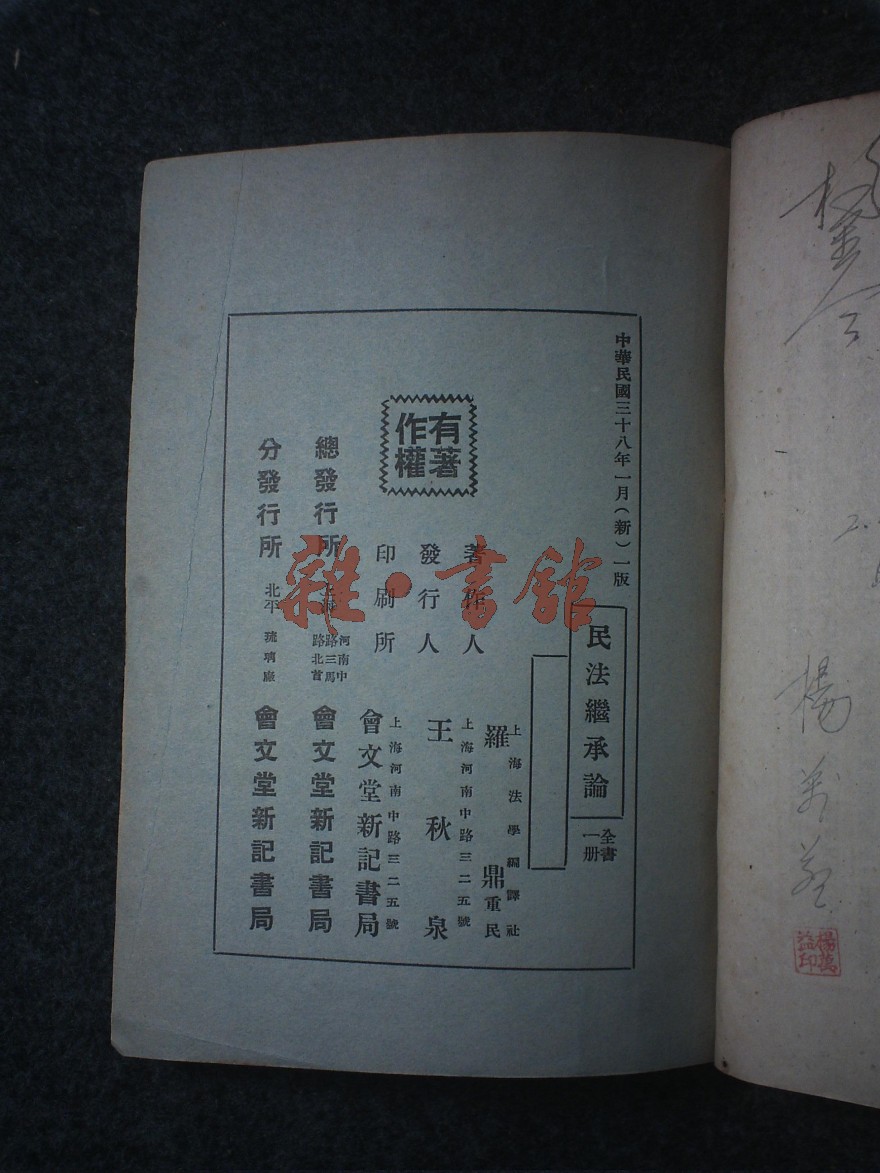 中華民國三十八年一月(新)一版
民法繼承論
全書一册
上海法學編譯社
著作人 羅鼎重民
上海河南中路三二五號
發行人 王秋泉
上海河南中路三二五號
印刷所 會文堂新記書局
有著作權
總發行所 上海 河南中路三馬路北首 會文堂新記書局
分發行所 北平 琉璃廠 會文堂新記書局
雜·書館
楊
楊萬益印